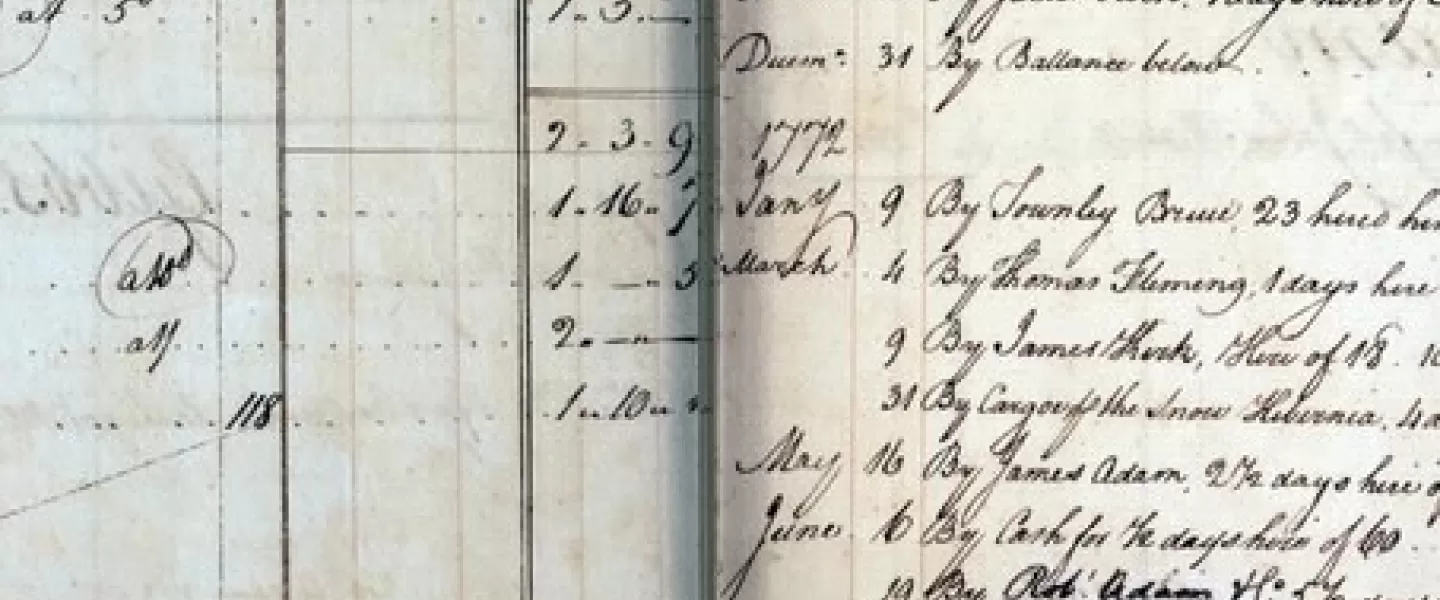 at 5d
1 - 3 - —
2 - 3 - 9
1 - 16 - 7
1 - — - 5
2 - — - —
118
1 - 10
31 By Ballance below
1772
Jany 9 By Townley Bruce, 23 hired
March 4 By Thomas Fleming, 1 days hire
9 By James Kirk, Hire of 18
31 By Cargo of the Snow Hibernia, 4
May 16 By James Adam, 2½ days hire of
June 6 By Cash for ½ days hire of 60
19 By Robt. Adam & Co